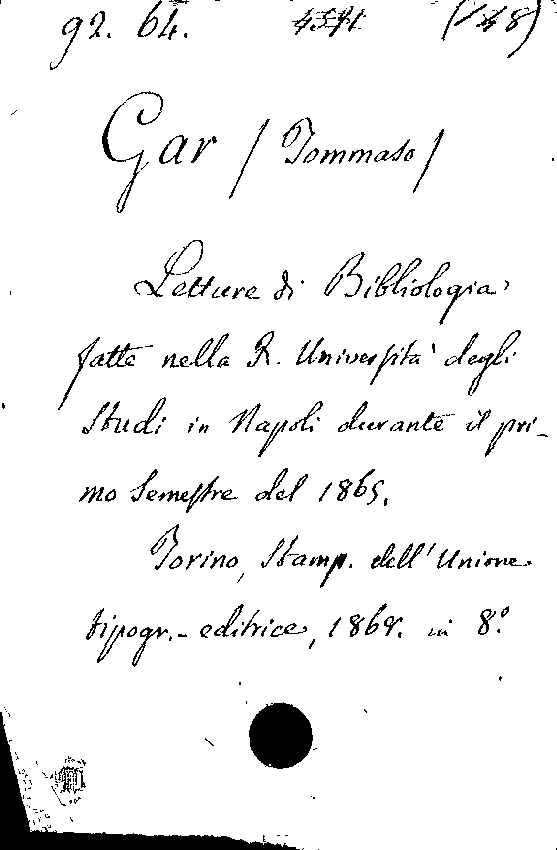 92. 64. (148)
Gar / Tommaso /
Letture di Bibliologia
fatte nella R. Università degli
Studi in Napoli durante il pri-
mo Semestre del 1865.
Torino, Stamp. dell'Unione
tipogr.- editrice, 1868. in 8.°